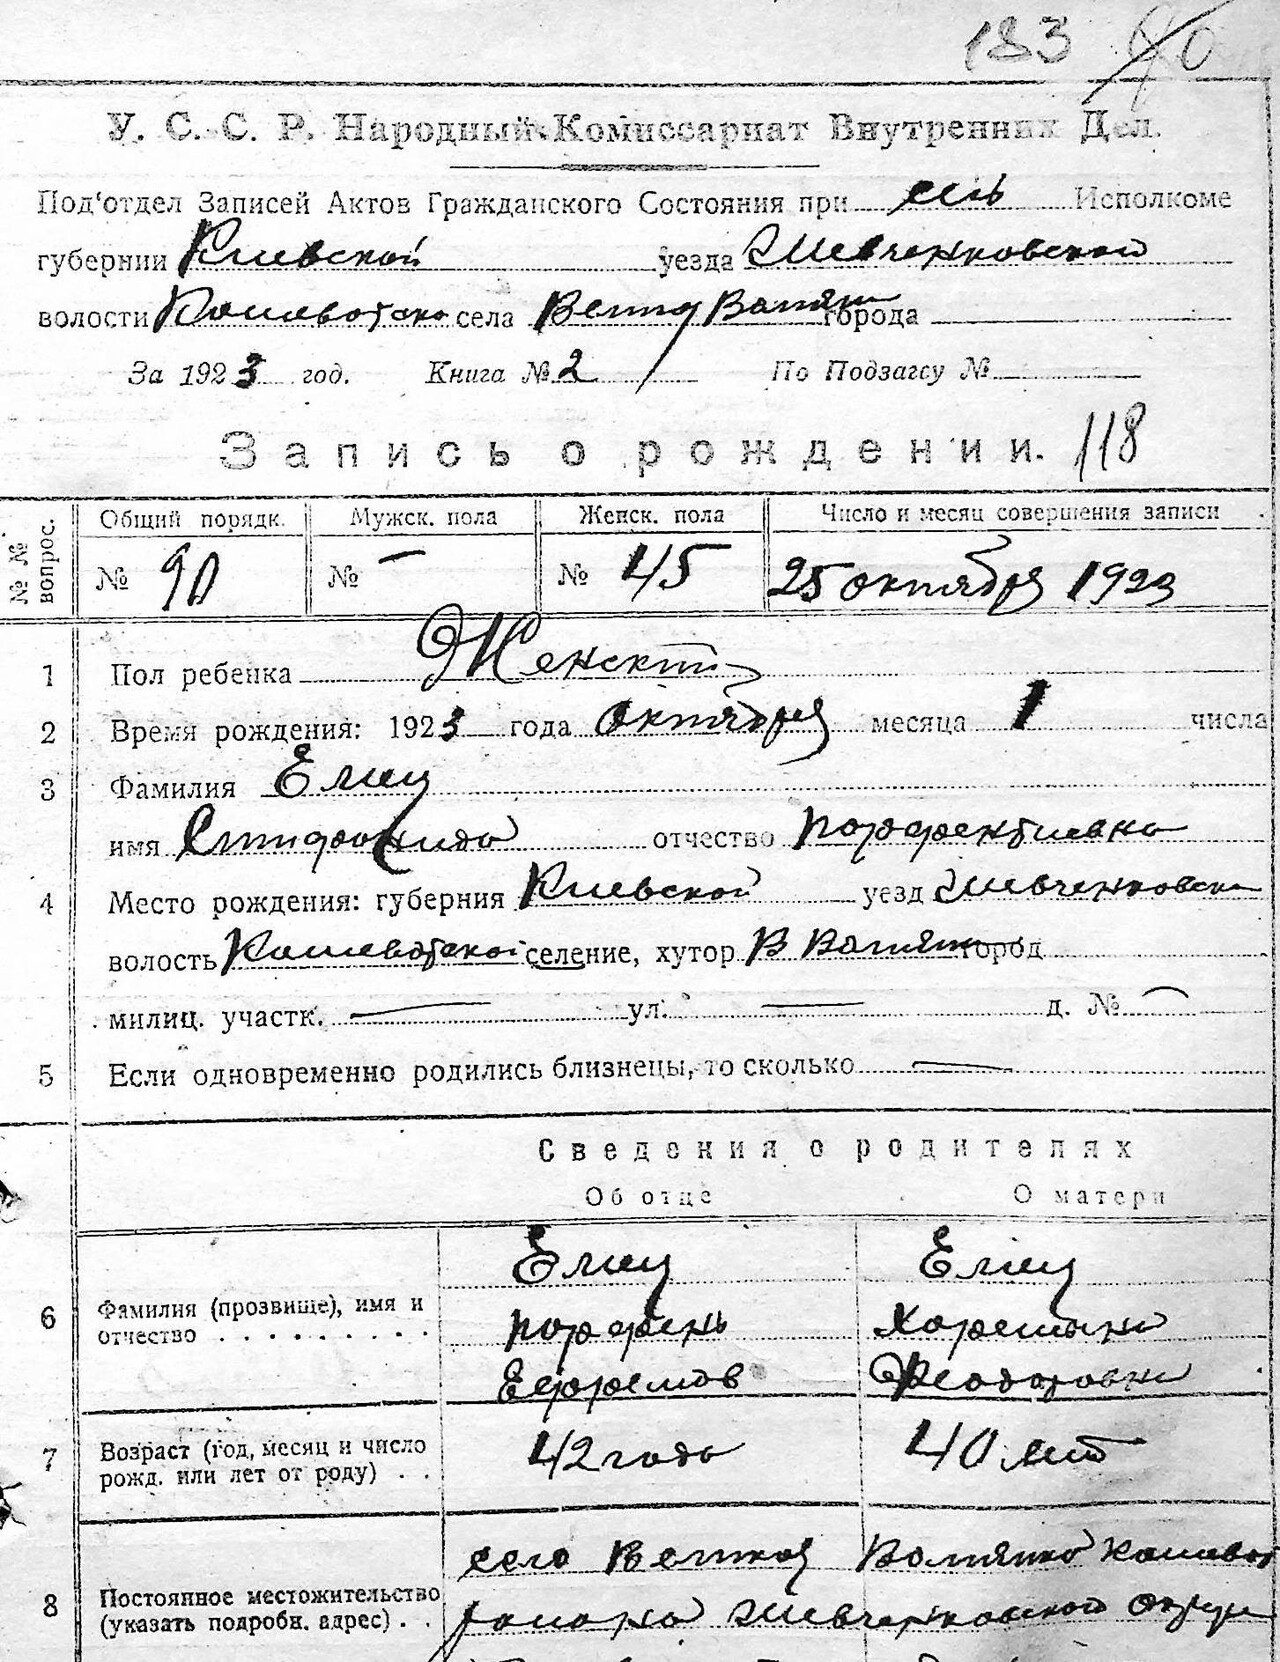 183
У. С. С. Р. Народный Комиссариат Внутренних Дел.
Под'отдел Записей Актов Гражданского Состояния при сель Исполкоме
губернии Киевской уезда Шевченковской
волости села города
За 1923 год. Книга № 2 По Подзагсу №
Запись о рождении. 118
№№ вопрос. Общий порядк. Мужск. пола Женск. пола Число и месяц совершения записи
№ 90 № — № 45 25 октября 1923
1 Пол ребенка Женский
2 Время рождения: 1923 года октября месяца 1 числа
3 Фамилия Елец
имя отчество Порфентиевна
4 Место рождения: губерния Киевской уезд Шевченковск
волость селение, хутор В город
милиц. участк. — ул. — д. № —
5 Если одновременно родились близнецы, то сколько —
Сведения о родителях
Об отце О матери
Елец Елец
6 Фамилия (прозвище), имя и Порфень
отчество Ефремов Феодоровна
7 Возраст (год, месяц и число 42 года 40 лет
рожд. или лет от роду)
село Великой
8 Постоянное местожительство
(указать подробн. адрес) района Шевченковского округи